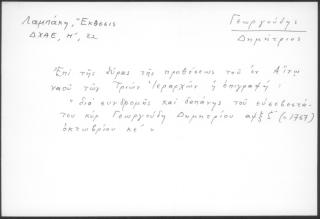 Λαμπάκη, "Έκθεσις
ΔΧΑΕ, Η', 22
Γεωργούδης
Δημήτριος
Ἐπί τῆς θύρας τῆς προθέσεως τοῦ ἐν Αἴνῳ
ναοῦ τῶν Τριῶν Ἱεραρχῶν ἡ ἐπιγραφή:
" διά συνδρομῆς καί δαπάνης τοῦ εὐσεβεστά-
του κύρ Γεωργούδη Δημητρίου αψξζ (=1767)
ὀκτωβρίου κε' "